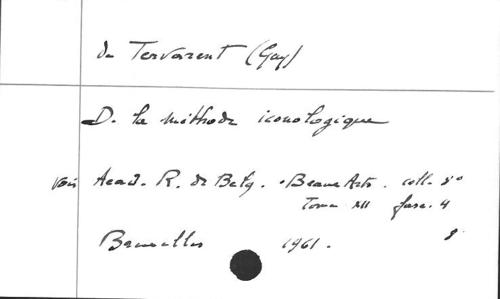 de Tervarent (Guy)
De la méthode iconologique
voir Acad. R. de Belg. - Beaux Arts. coll. 8°
Tome XII fasc. 4
Bruxelles 1961. 8°